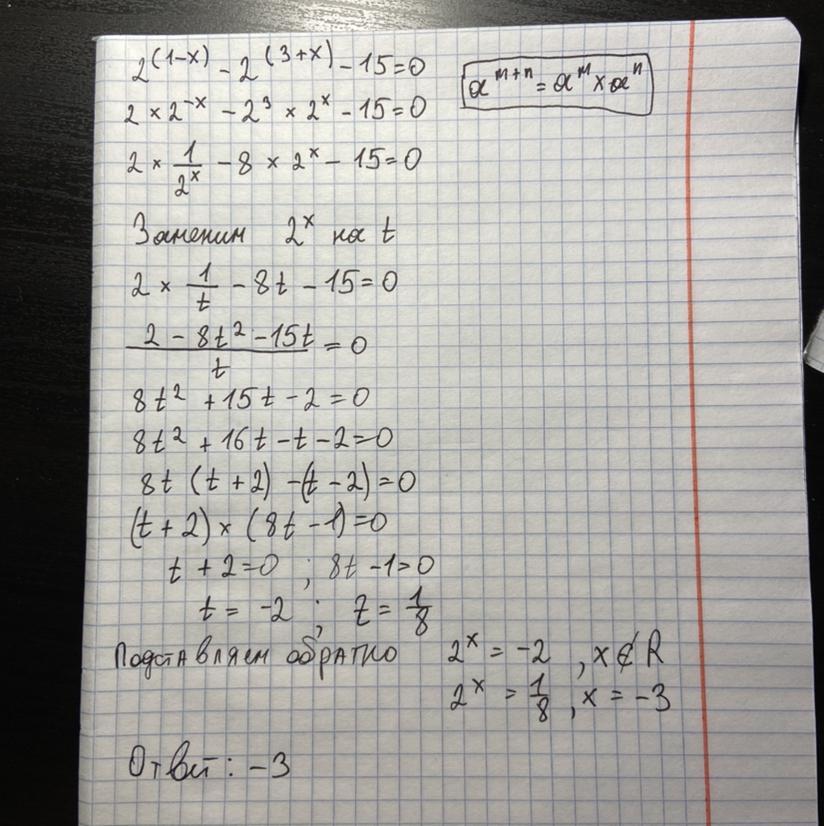 2^(1-x) - 2^(3+x) - 15 = 0
a^m+n = a^m × a^n
2 × 2^-x - 2^3 × 2^x - 15 = 0
2 × 1/2^x - 8 × 2^x - 15 = 0
Заменим 2^x на t
2 × 1/t - 8t - 15 = 0
(2 - 8t² - 15t)/t = 0
8t² + 15t - 2 = 0
8t² + 16t - t - 2 = 0
8t (t + 2) - (t - 2) = 0
(t + 2) × (8t - 1) = 0
t + 2 = 0 ; 8t - 1 = 0
t = -2 ; t = 1/8
Подставляем обратно 2^x = -2 , x ∉ R
2^x = 1/8 , x = -3
Ответ: -3